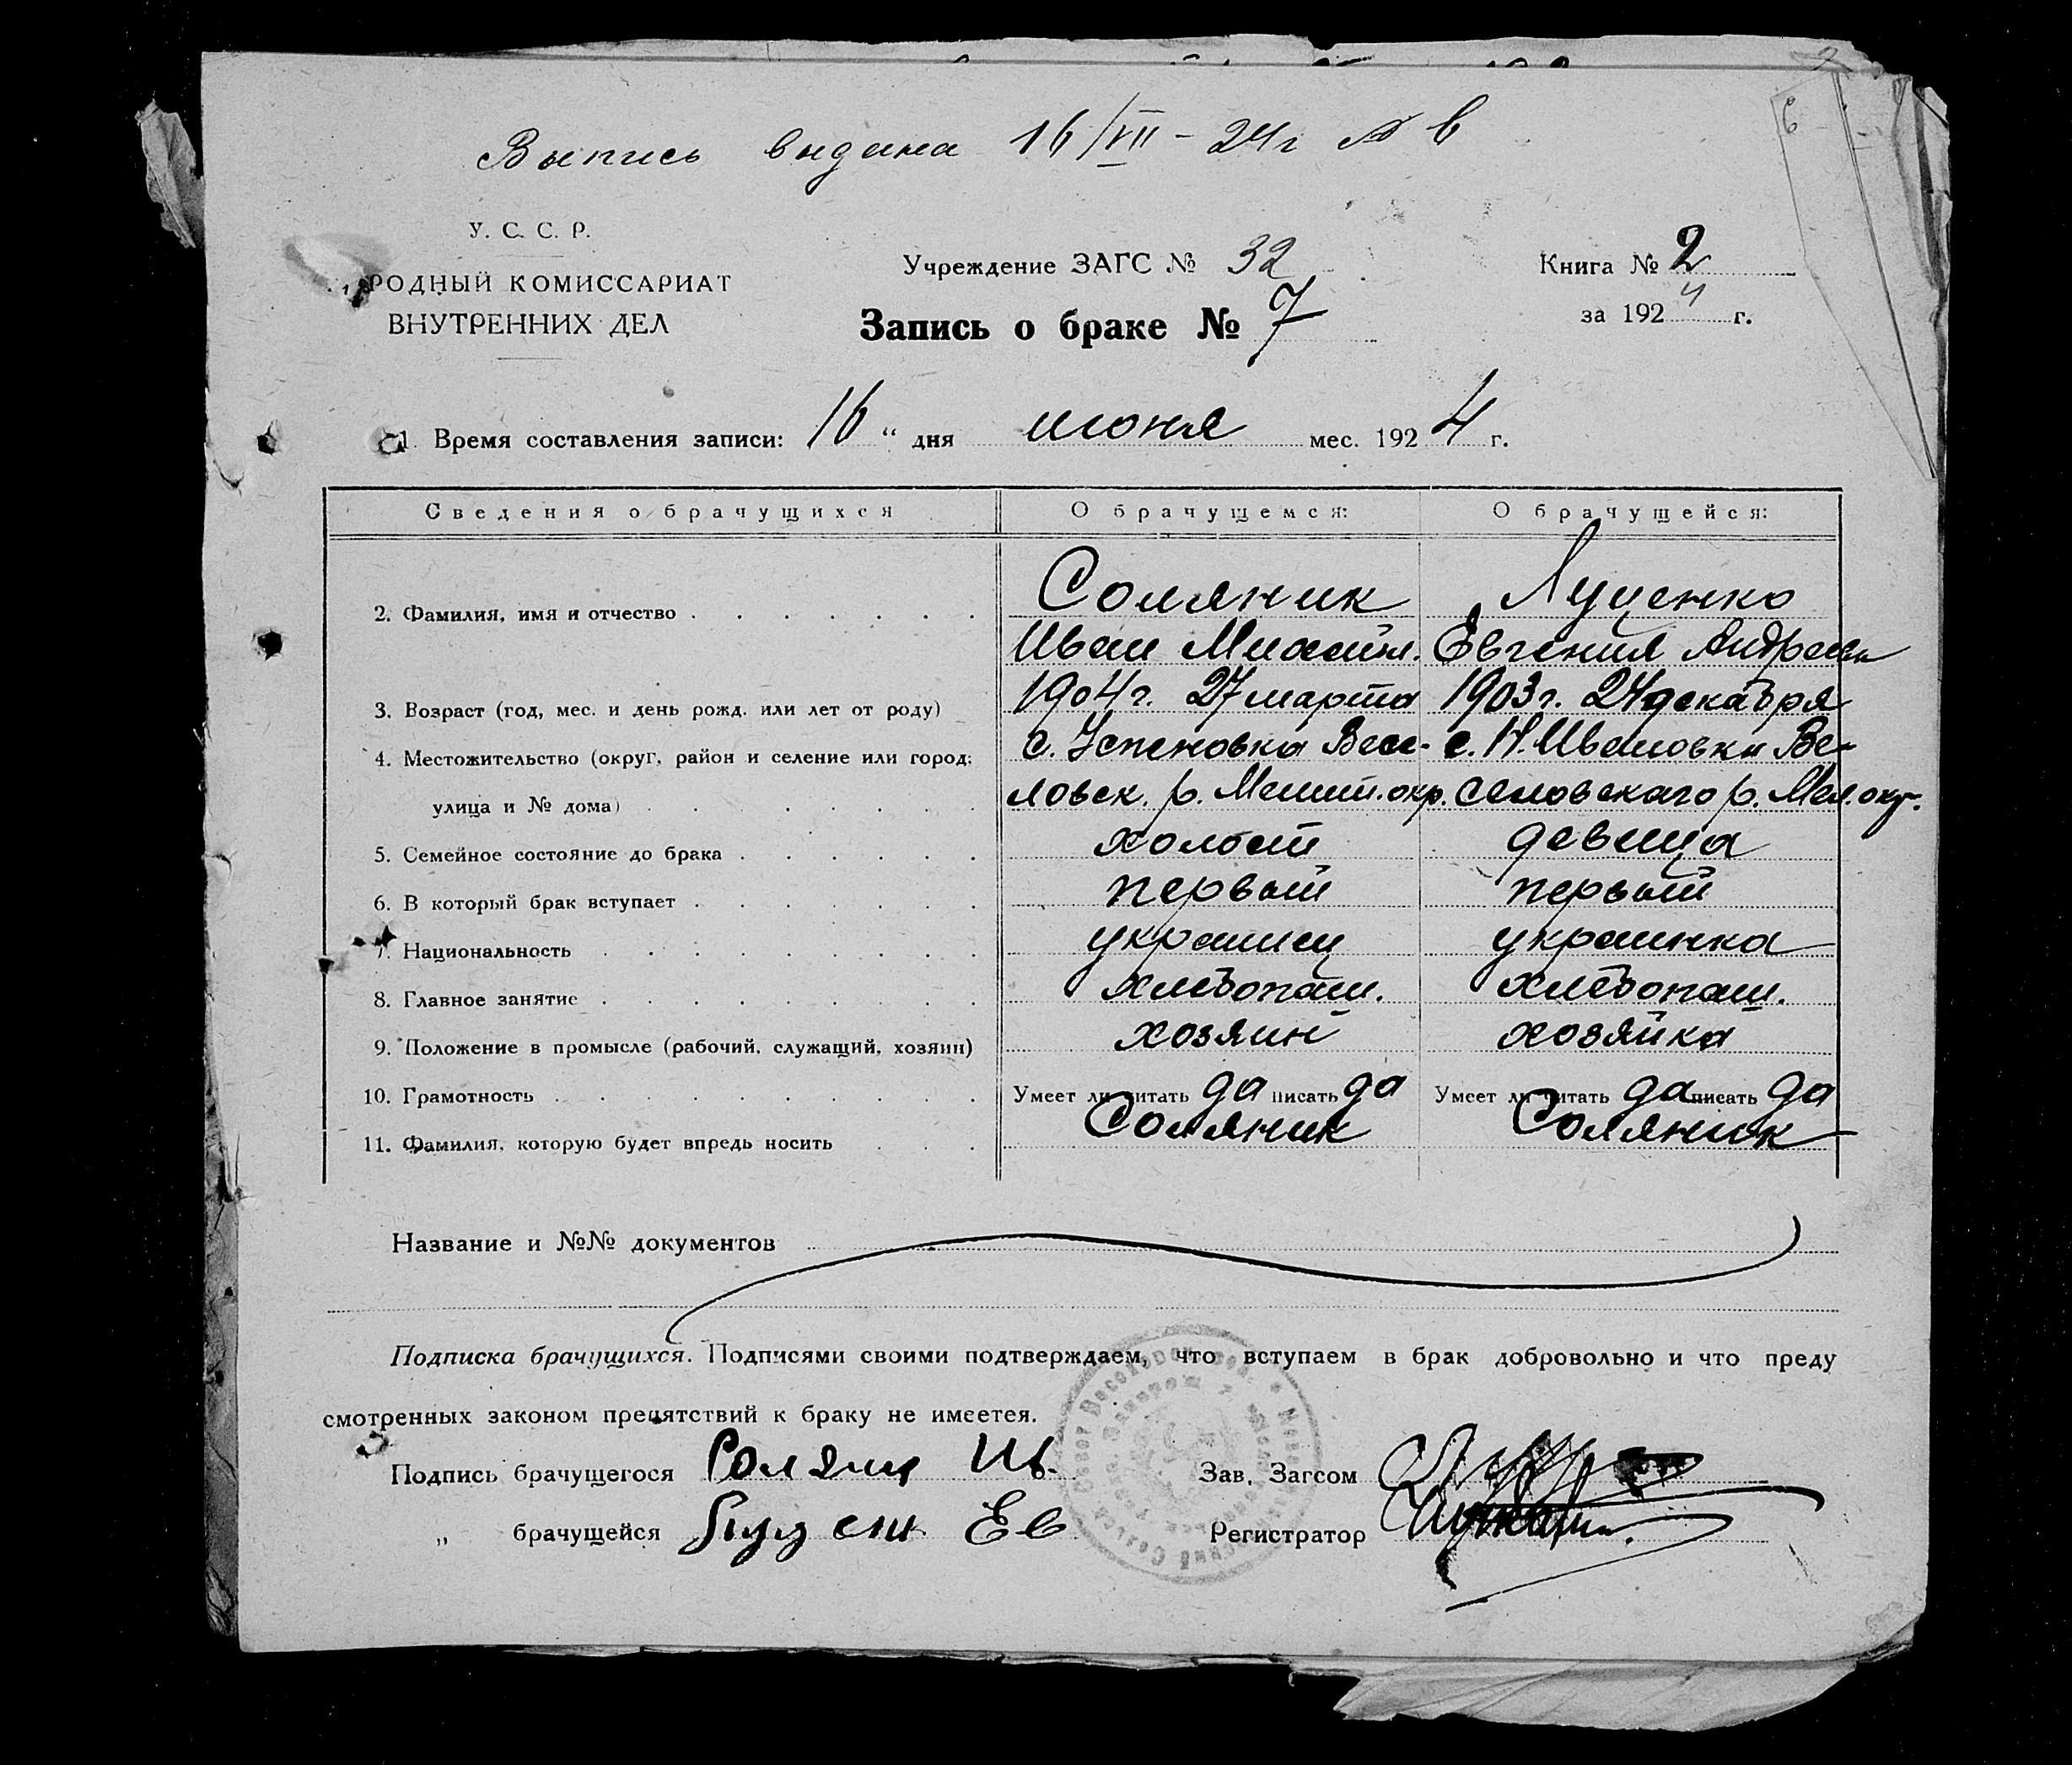 Выпись выдана 16/VII - 24 г
У. С. С. Р.
РОДНЫЙ КОМИССАРИАТ
ВНУТРЕННИХ ДЕЛ
Учреждение ЗАГС № 32
Запись о браке № 7
Книга № 2
за 1924 г.
1 Время составления записи: 16 “ дня июня мес. 1924 г.
Сведения о брачущихся О брачущемся: О брачущейся:
2. Фамилия, имя и отчество Соляник Луценко
Иван Михайл. Евгения Андреевн
3. Возраст (год, мес. и день рожд. или лет от роду) 1904 г. 27 марта 1903 г. 24 декабря
4. Местожительство (округ, район и селение или город; с. Успеновка Весе- с. Н. Ивановка Ве-
улица и № дома) ловск. р. Мелит. окр. селовскаго р. Мел. окр.
5. Семейное состояние до брака холост девица
6. В который брак вступает первый первый
7. Национальность украинец украинка
8. Главное занятие хлебопаш. хлебопаш.
9. Положение в промысле (рабочий, служащий, хозяин) хозяин хозяйка
10. Грамотность Умеет ли читать да писать да Умеет ли читать да писать да
11. Фамилия, которую будет впредь носить Соляник Соляник
Название и №№ документов
Подписка брачущихся. Подписями своими подтверждаем, что вступаем в брак добровольно и что преду
смотренных законом препятствий к браку не имеется.
Подпись брачущегося Соляни Ив. Зав. Загсом
„ брачущейся Луценк Ев Регистратор